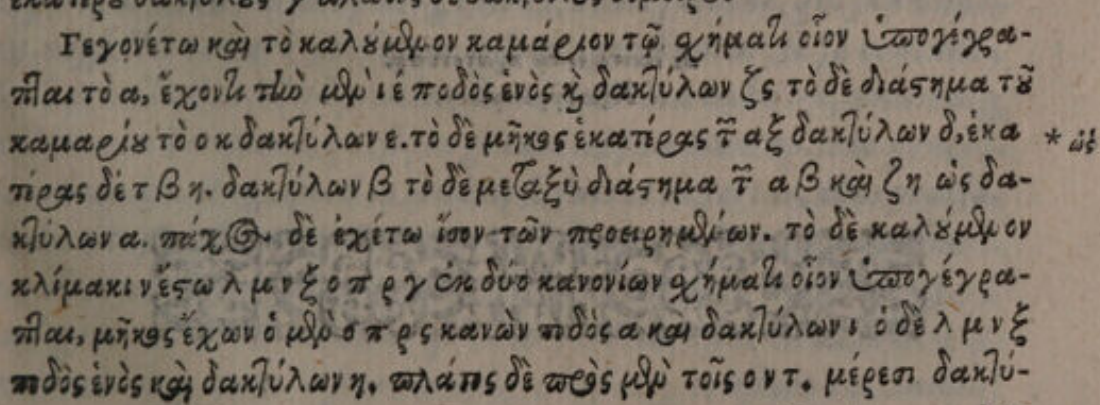 Γεγονέτω καὶ τὸ καλούμενον καμάριον τῷ σχήματι οἷον ὑπογέγρα-
πται τὸ α, ἔχοντι τὴν μὲν ι έ ποδὸς ἑνὸς καὶ δακτύλων ζς τὸ δὲ διάστημα τοῦ
καμαρίου τὸ ο κ δακτύλων ε. τὸ δὲ μῆκος ἑκατέρας τῶν α ξ δακτύλων δ, ἑκα * ὡς
τέρας δὲ τ β η. δακτύλων β τὸ δὲ μεταξὺ διάστημα τῶν α β καὶ ζ η ὡς δα-
κτύλων α. πάχος δὲ ἐχέτω ἴσον τῶν προειρημένων. τὸ δὲ καλούμενον
κλίμακιν ἔστω λ μ ν ξ ο π ρ γ ἐκ δύο κανονίων σχήματι οἷον ὑπογέγρα-
πται, μῆκος ἔχων ὁ μὲν σ π ρ ς κανὼν ποδὸς α καὶ δακτύλων ι ὁ δὲ λ μ ν ξ
ποδὸς ἑνὸς καὶ δακτύλων η. πλάτος δὲ πρὸς μὲν τοῖς ο ν τ. μέρεσι δακτύ-